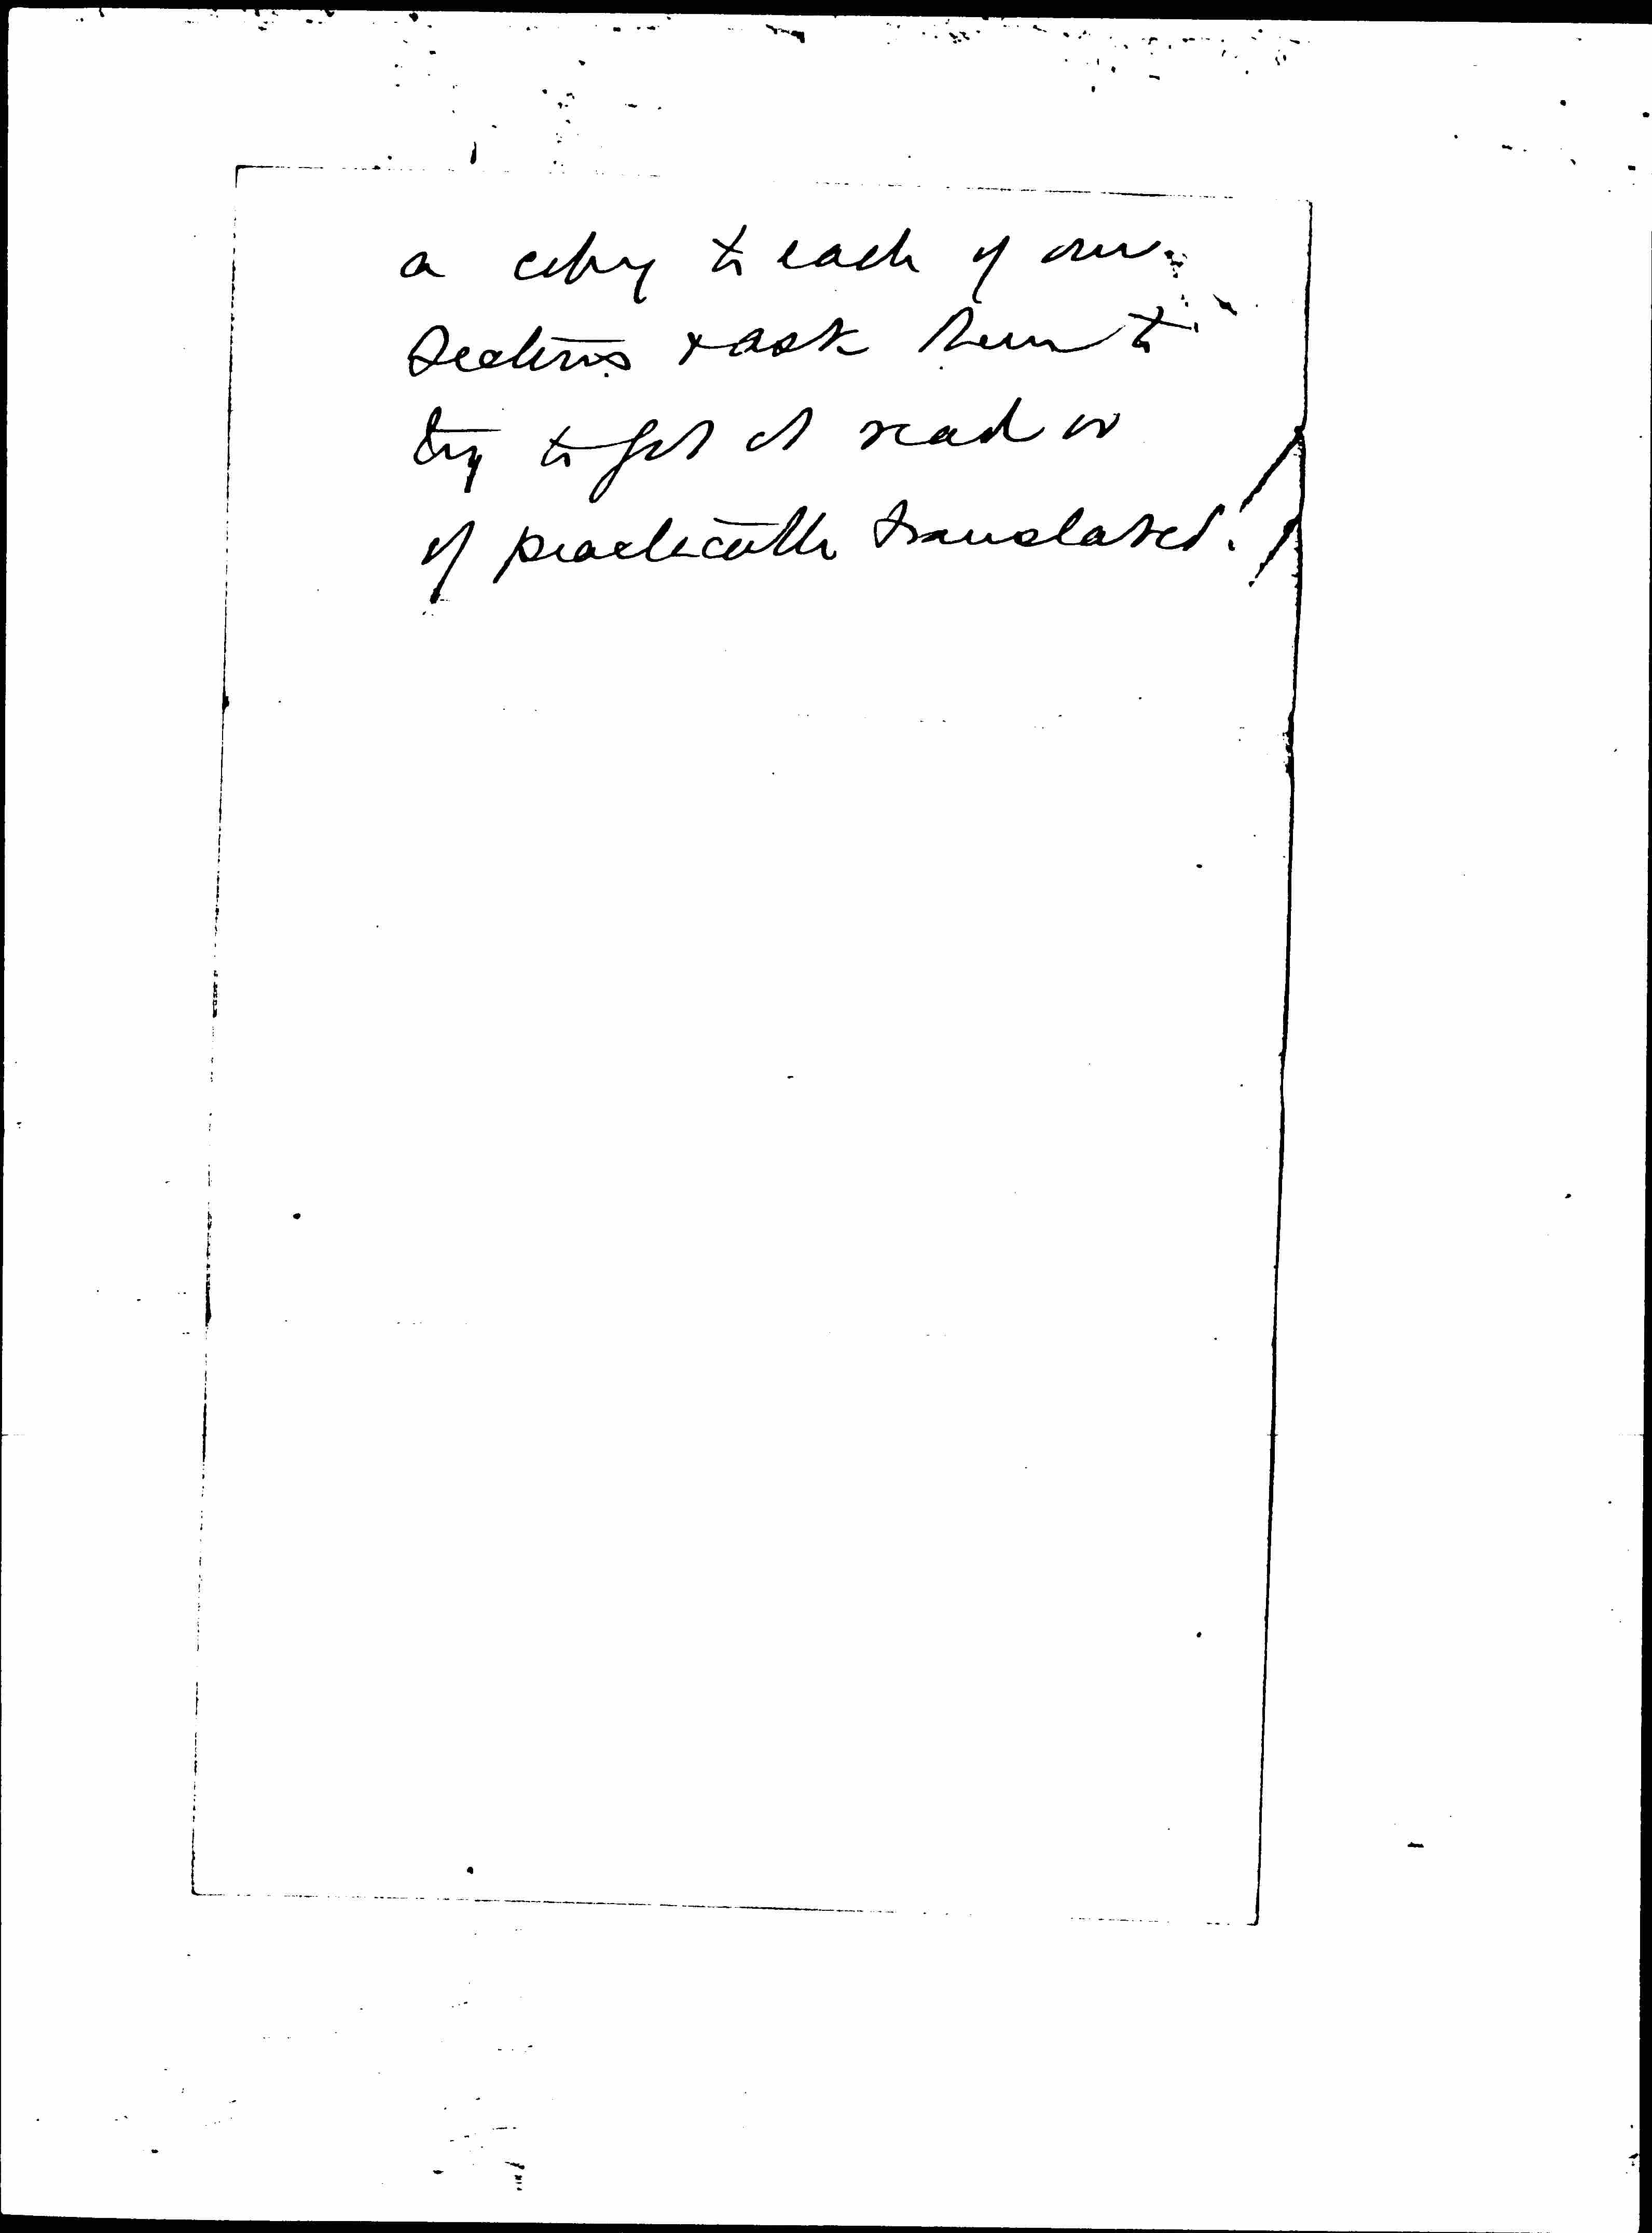 a copy to each of our
Sections & ask them to
try to get it read or
if practicable translated.